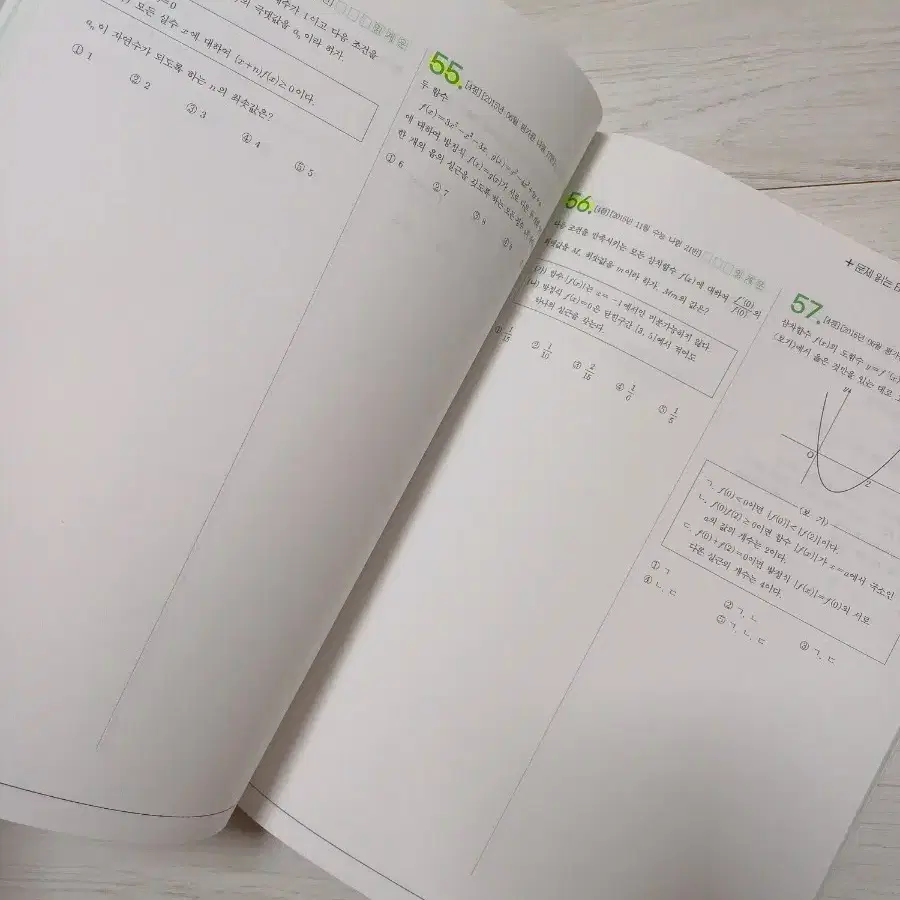 수가 1이고 다음 조건을
의 극댓값을 aₙ이라 하자.
=0
모든 실수 x에 대하여 (x+n)f(x)≥0이다.
aₙ이 자연수가 되도록 하는 n의 최솟값은?
① 1
② 2
③ 3
④ 4
⑤ 5
55. [4점][2015년 06월 평가원 나형
두 함수
f(x)=3x³-x²-3x, g(x)=x³-4x²+9x+a
에 대하여 방정식 f(x)=g(x)가 서로 다른 두
한 개의 음의 실근을 갖도록 하는 모든 정수
① 6
② 7
③ 8
④ 9
56. [4점][2015년 11월 수능 나형 21번]
다음 조건을 만족시키는 모든 삼차함수 f(x)에 대하여 f'(0)/f(0)의
최댓값을 M, 최솟값을 m이라 하자. Mm의 값은?
(가) 함수 |f(x)|는 x=-1에서만 미분가능하지 않다.
(나) 방정식 f(x)=0은 닫힌구간 [3, 5]에서 적어도
하나의 실근을 갖는다.
① 1/15
② 1/10
③ 2/15
④ 1/6
⑤ 1/5
+ 문제 읽는
57. [4점][2016년 06월 평가
삼차함수 f(x)의 도함수 y=f'(x)
<보기>에서 옳은 것만을 있는 대로
y
O
2
〈보 기〉
ㄱ. f(0)<0이면 |f(0)|<|f(2)|이다.
ㄴ. f(0)f(2)≥0이면 함수 |f(x)|가 x=a에서 극소인
a의 값의 개수는 2이다.
ㄷ. f(0)+f(2)=0이면 방정식 |f(x)|=f(0)의 서로
다른 실근의 개수는 4이다.
① ㄱ
② ㄱ, ㄴ
③ ㄱ, ㄷ
④ ㄴ, ㄷ
⑤ ㄱ, ㄴ, ㄷ